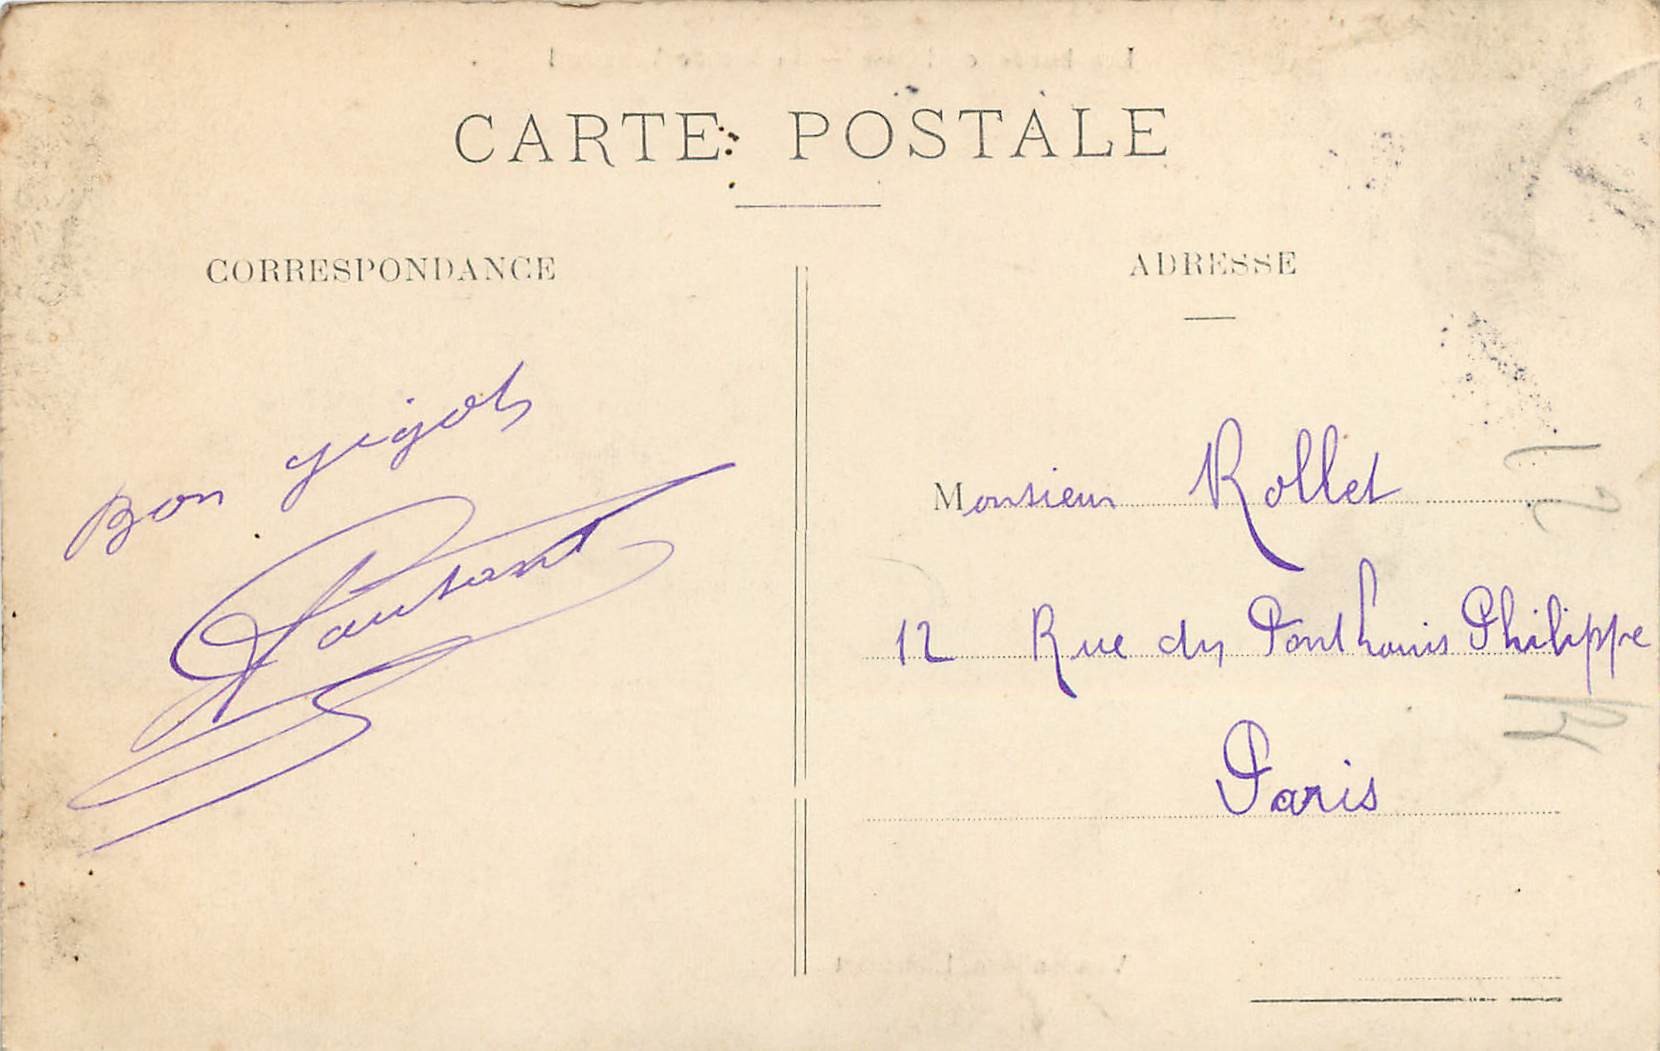 CARTE POSTALE
CORRESPONDANCE
ADRESSE
Bon gigot
Monsieur Rollet
12 Rue du Pont Louis Philippe
Paris
12